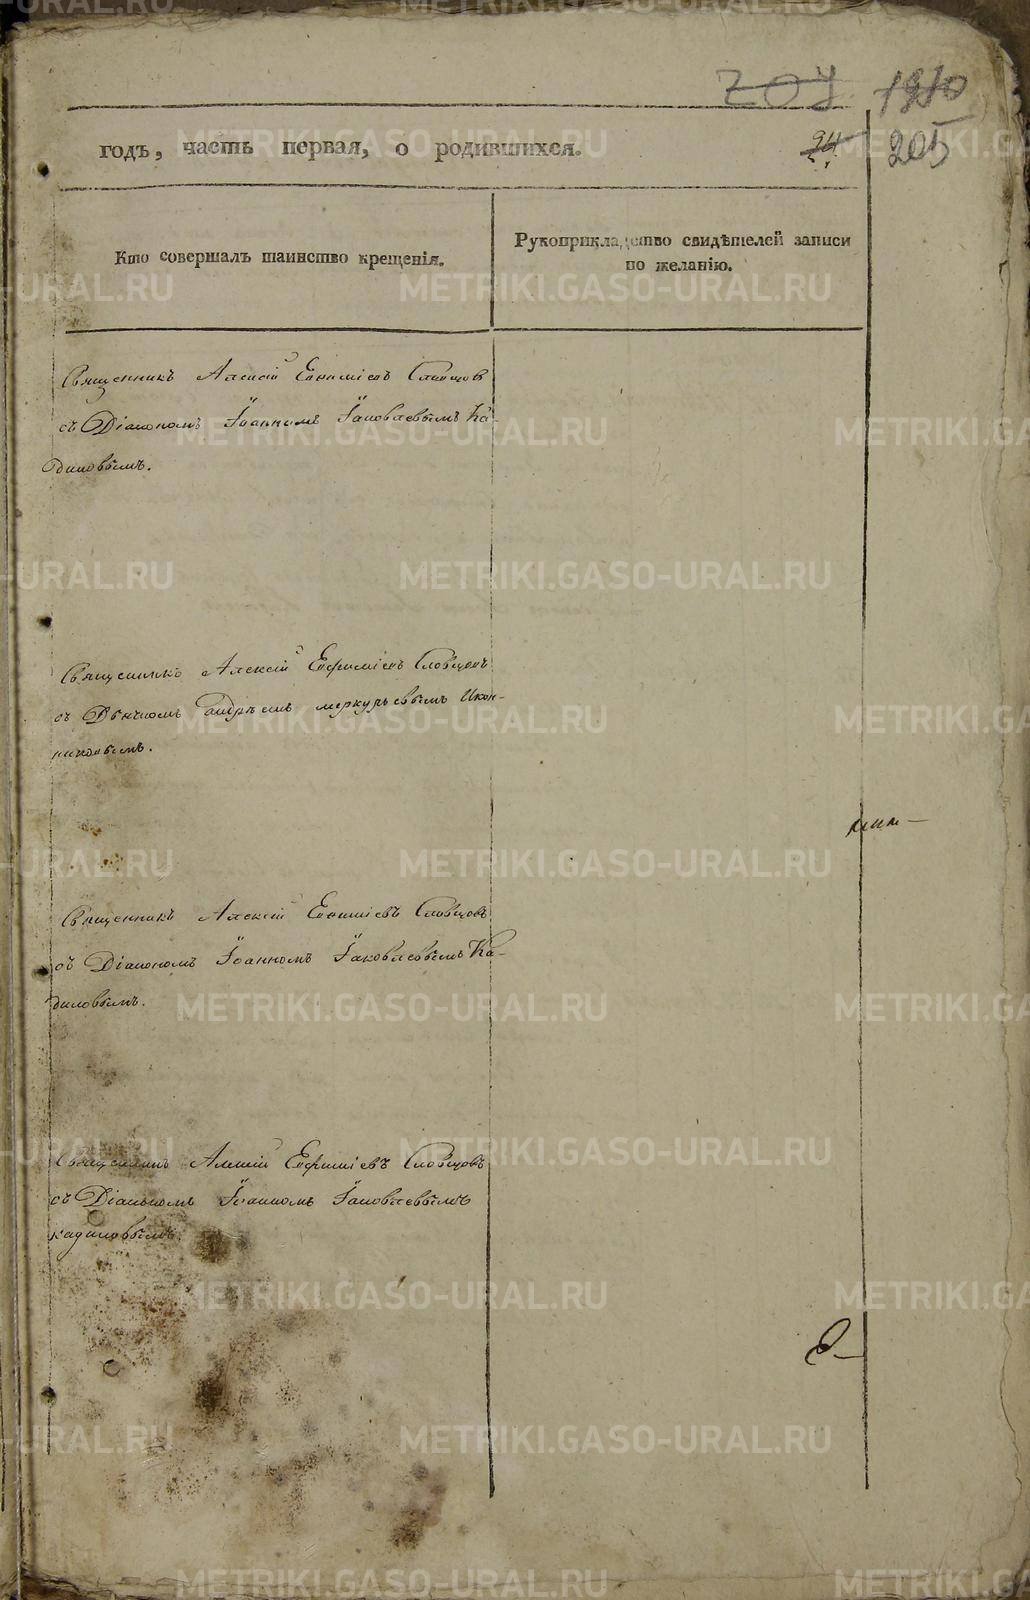 204 1910
годъ, часть первая, о родившихся. 94 205
Кто совершалъ таинство крещенія.
Рукоприкладство свидѣтелей записи
по желанію.
Священникъ Алексій Евѳиміевъ Словцов
съ Діакономъ Іоанномъ Іаковлевымъ Ка-
диловымъ.
Священникъ Алексій Евфиміевъ Словцовъ
съ Дьячкомъ Андрѣемъ меркурьевымъ Икон-
никовымъ.
Священникъ Алексій Евѳиміевъ Словцовъ
съ Діакономъ Іоанномъ Іаковлевымъ Ка-
диловымъ.
Священникъ Алексій Евфиміевъ Словцовъ
съ Діакономъ Іоанномъ Іаковлевымъ
кадиловымъ.
METRIKI.GASO-URAL.RU